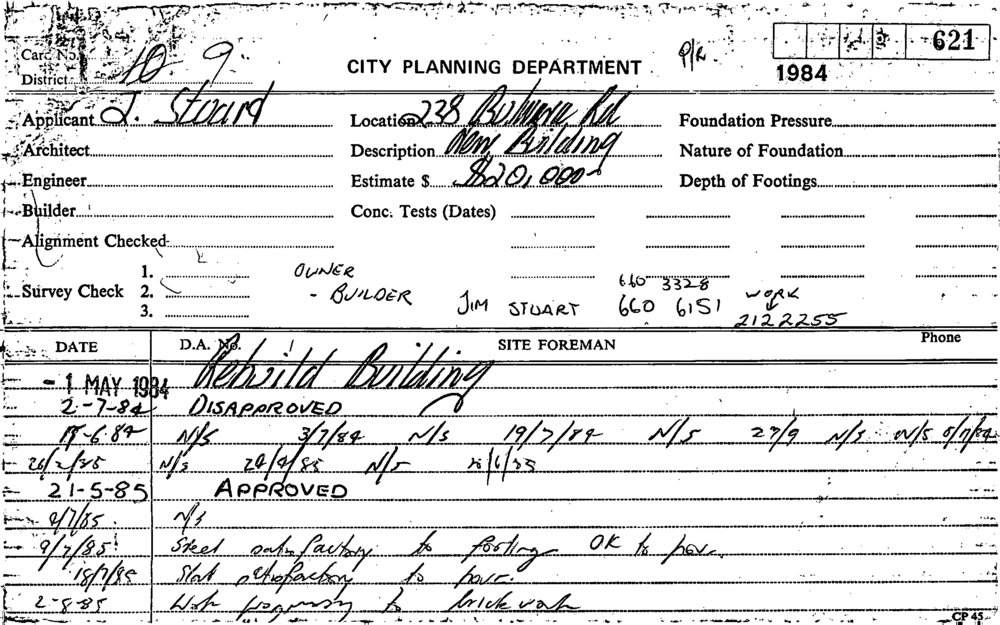 621
Card No.
District 10. 9.
CITY PLANNING DEPARTMENT
1984
Applicant J. Stuard Location 238 Rd Foundation Pressure
Architect Description New Building Nature of Foundation
Engineer Estimate $ $20,000 Depth of Footings
Builder Conc. Tests (Dates)
Alignment Checked
1.
OWNER
Survey Check 2. - BUILDER 660 3328
3. JIM STUART 660 6151 WORK
2122255
DATE D.A. No. SITE FOREMAN Phone
- 1 MAY 1984 Rebuild Building
2-7-84 DISAPPROVED
6.84 N/S 3/7/84 N/S 19/7/84 N/S 27/9 N/S N/S
26/2/85 N/S 24/4/85 N/S
21-5-85 APPROVED
2/7/85 N/S
9/7/85 Steel satisfactory to footings OK to pour.
18/7/85 Slab satisfactory to pour.
2-8-85 Work to brickwork
CP 45